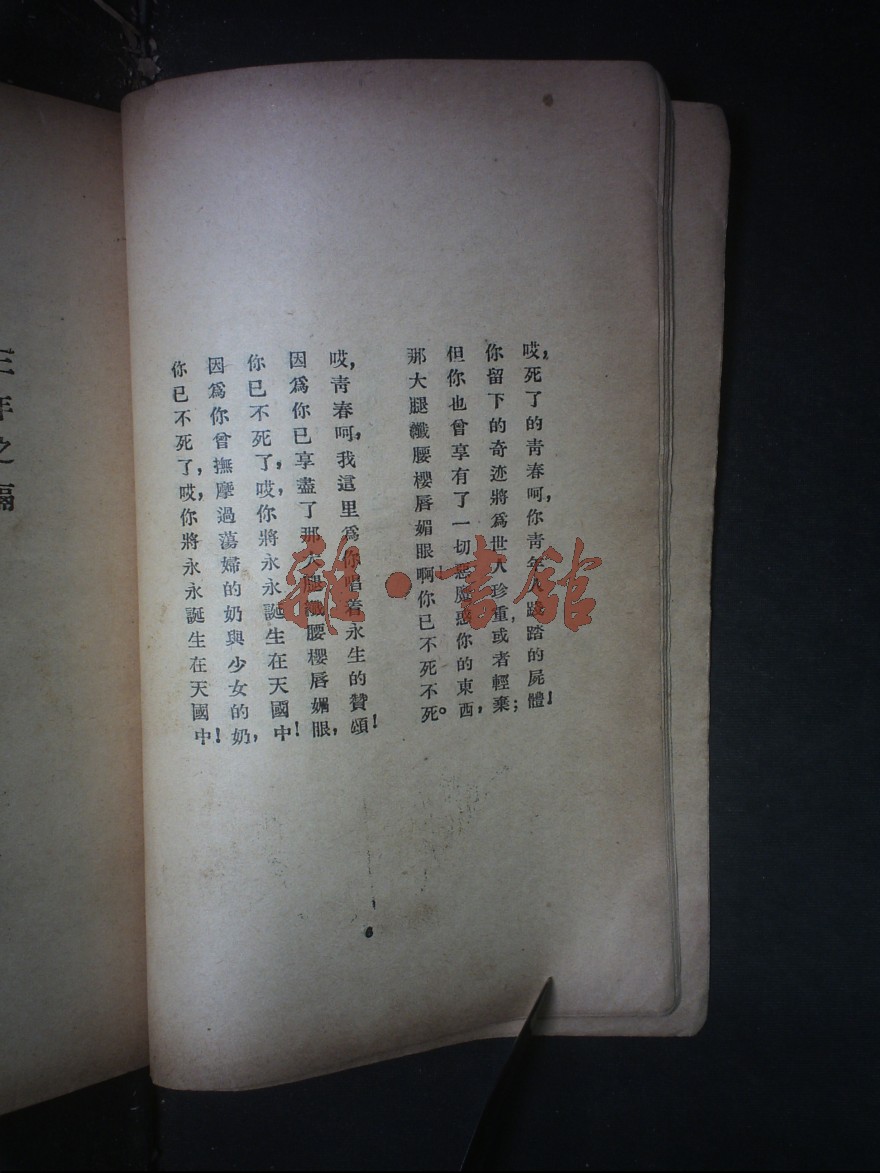 哎,死了的靑春呵,你靑年人踐踏的屍體!
你留下的奇迹將爲世人珍重,或者輕棄;
但你也曾享有了一切惡魔惑你的東西,
那大腿纖腰櫻唇媚眼啊!你已不死不死。
哎,靑春呵,我這里爲你唱着永生的贊頌!
因爲你已享盡了那大腿纖腰櫻唇媚眼,
你已不死了,哎,你將永永誕生在天國中!
因爲你曾撫摩過蕩婦的奶與少女的奶,
你已不死了,哎,你將永永誕生在天國中!
三年之隔
雜·書館